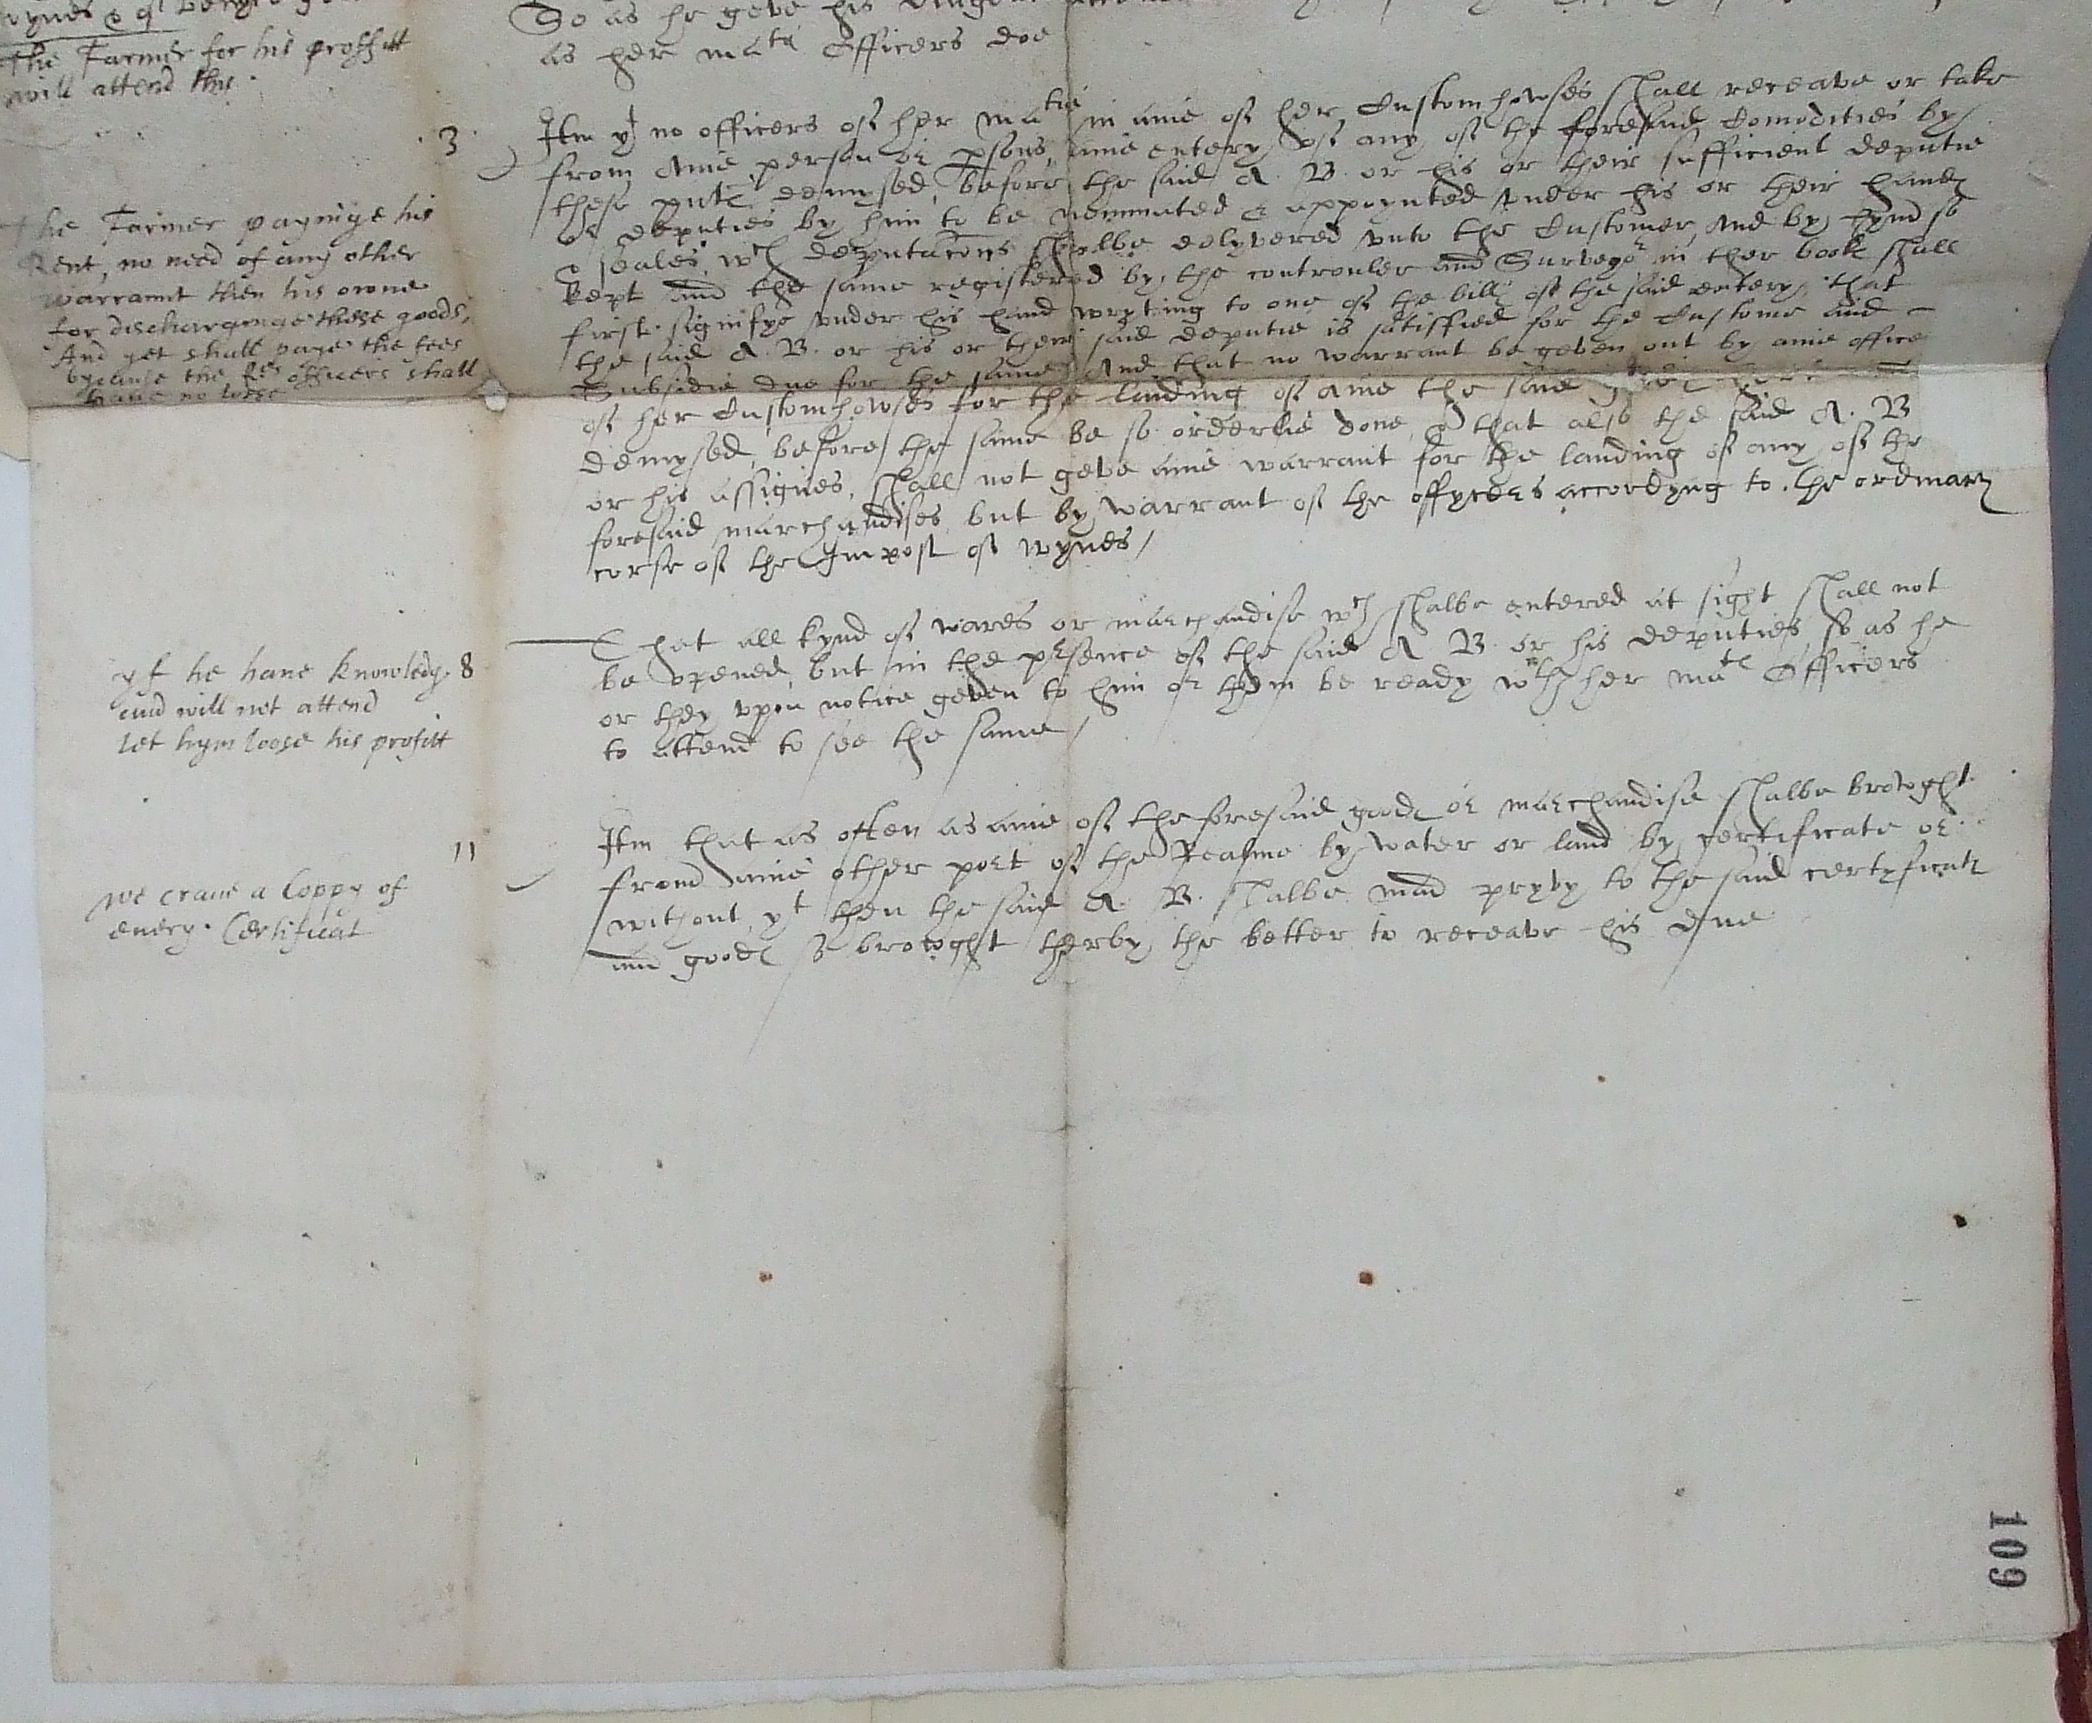 So as he geve his
as her ma^ts Officers doe
The Farmer for his proffitt
will attend this
3
Itm y^t no officers of her ma^tie in anie of her Customhowses shall receave or take
from anie person or psons, anie entery of any of the foresaid Comodities by
these pntℯ demysed, before the said A. B. or his or their sufficient deputie
or deputies by him to be nominated & appoynted vnder his or their handℯ
& seales, w^ch deputacons shalbe delyvered vnto the Customer, and by hym so
kept and the same registered by the controuler and Survey^or in ther bookℯ shall
first signifye vnder his hand wryting to one of the billℯ of the said entery, that
the said A. B. or his or their said deputie is satisffied for the Custome and
Subsidie due for the same, And that no warrant be geven out by anie office
of her Customhowses for the landing of anie the said
demysed, before the same be so orderlie done, & that also the said A. B
or his assignes, shall not geve anie warrant for the landing of any of the
foresaid marchandises but by warrant of the offycers accordyng to the ordinary
corse of the Impost of wynes /
The Farmer payinge his
Rent, no need of any other
warrannt then his owne
for discharginge these goods,
And yet shall paye the fees
bycause the officers shall
haue no losse
8
That all kynd of wares or marchandise w^ch shalbe entered at sight shall not
be opened, but in the presence of the said A B. or his deputies, so as he
or they vpon notice geven to him or them be ready w^th her ma^te Officers
to attend to see the same /
yf he haue knowledg
and will not attend
let hym loose his profitt
11
Itm that as often as anie of the foresaid goodℯ or marchandise shalbe browght
from anie other port of the Realme by water or land by certificate or
without, y^t then the said A. B. shalbe mad pryvy to the said certyficatℯ
and goodℯ so browght therby the better to receave his due
we craue a Coppy of
euery Certificat
109